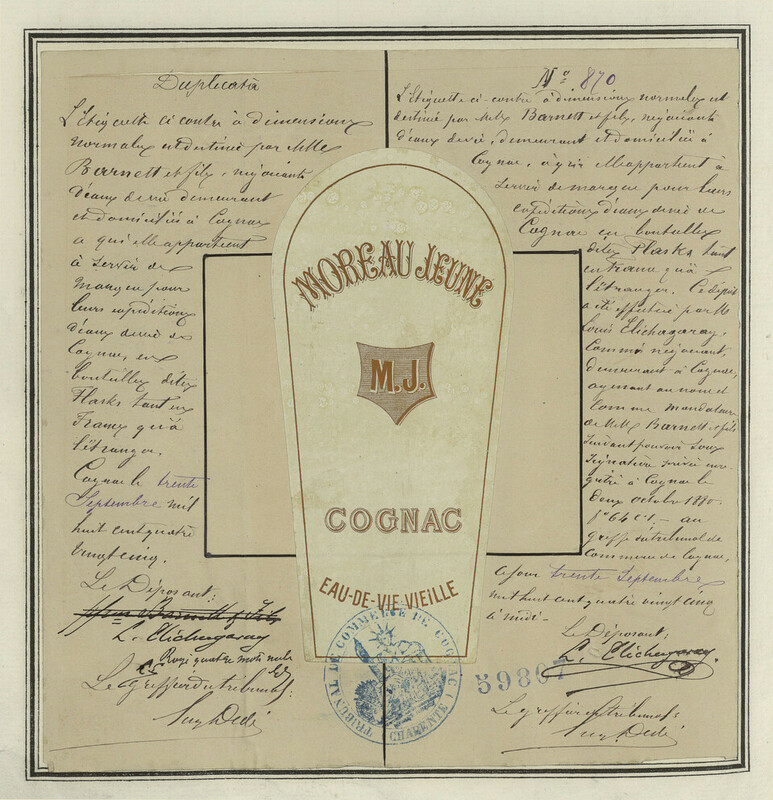 Duplicata
L'Etiquette ci contre à dimensions
normales est destinée par MM
Barnett et fils, négociants
d'eaux de vie demeurant
et domiciliés à Cognac
a qui elle appartient
à servir de
marque pour
leurs expéditions
d'eaux de vie de
Cognac, en
bouteilles dites
Flasks tant en
France qu'à
l'étranger.
Cognac le trente
Septembre mil
huit cent quatre
vingt cinq.
Le Déposant:
L. Elichagaray
Rayé quatre mots nuls
Le Greffier du tribunal:
MOREAU JEUNE
M.J.
COGNAC
EAU-DE-VIE VIEILLE
TRIBUNAL DE COMMERCE DE COGNAC
CHARENTE
59807
No 870
L'Etiquette ci-contre à dimensions normales est
destinée par MM Barnett et fils, négociants
d'eaux de vie, demeurant et domiciliés à
Cognac, à qui elle appartient à
servir de marque pour leurs
expéditions d'eaux de vie de
Cognac en bouteilles
dites Flasks tant
en France qu'à
l'étranger. Ce dépôt
a été effectué par M
Louis Elichagaray,
Commis négociant,
demeurant à Cognac,
agissant au nom et
comme mandataire
de MM Barnett et fils
suivant pouvoir sous
signature privée enre-
gistré à Cognac le
deux octobre 1880.
fo 64 c 1. - au
greffe du tribunal de
Commerce de Cognac,
ce jour trente Septembre
mil huit cent quatre vingt cinq
à midi.
Le Déposant:
L. Elichagaray
Le greffier du tribunal: